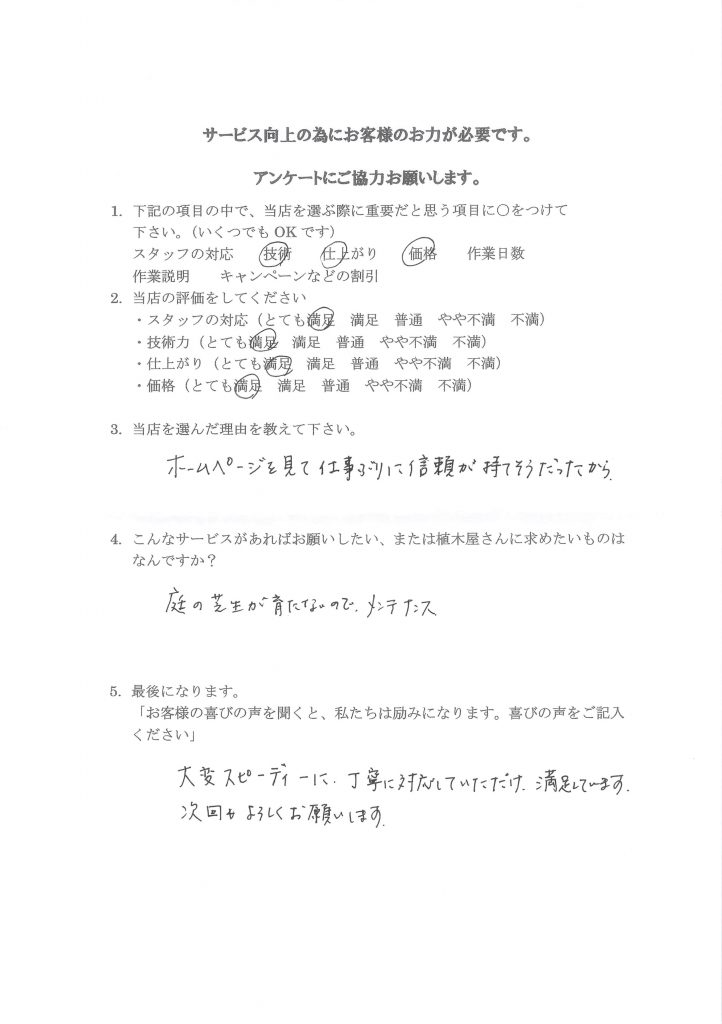 サービス向上の為にお客様のお力が必要です。
アンケートにご協力お願いします。
1. 下記の項目の中で、当店を選ぶ際に重要だと思う項目に〇をつけて
下さい。（いくつでも OK です）
スタッフの対応 技術 仕上がり 価格 作業日数
作業説明 キャンペーンなどの割引
2. 当店の評価をしてください
・スタッフの対応（とても満足 満足 普通 やや不満 不満）
・技術力（とても満足 満足 普通 やや不満 不満）
・仕上がり（とても満足 満足 普通 やや不満 不満）
・価格（とても満足 満足 普通 やや不満 不満）
3. 当店を選んだ理由を教えて下さい。
ホームページを見て仕事ぶりに信頼が持てそうだったから.
4. こんなサービスがあればお願いしたい、または植木屋さんに求めたいものは
なんですか？
庭の芝生が育たないので、メンテナンス
5. 最後になります。
「お客様の喜びの声を聞くと、私たちは励みになります。喜びの声をご記入
ください」
大変スピーディーに、丁寧に対応していただけ、満足しています.
次回もよろしくお願いします.